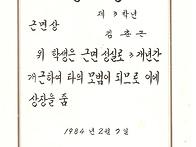 제 3 학년
근면상
김 춘 근
위 학생은 근면 성실로 3개년간
개근하여 타의 모범이 되므로 이에
상장을 줌
1984년 2월 9일